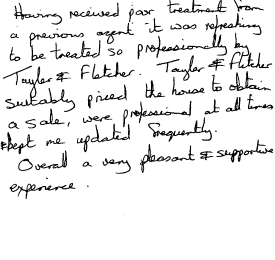 Having received poor treatment from
a previous agent it was refreshing
to be treated so professionally by
Tayler & Fletcher. Tayler & Fletcher
suitably priced the house to obtain
a sale, were professional at all times
& kept me updated frequently.
Overall a very pleasant & supportive
experience.